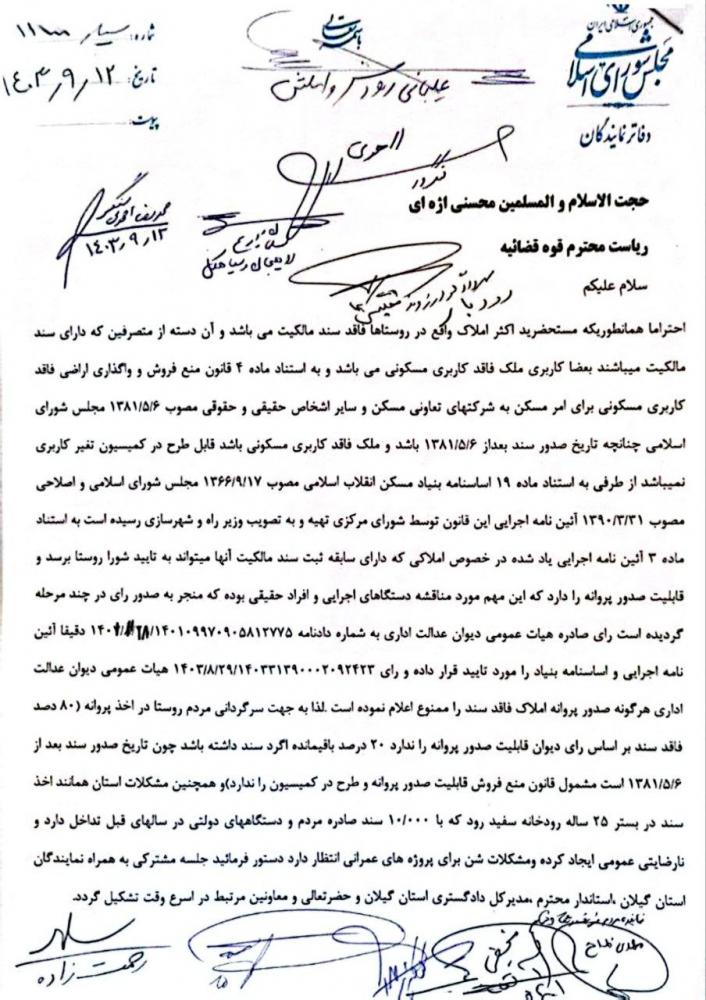 جمهوری اسلامی ایران
مجلس شورای اسلامی
دفاتر نمایندگان
باسمه تعالی
شماره:
تاریخ: ۱۴۰۳/۹/۱۲
پیوست:
حجت الاسلام و المسلمین محسنی اژه ای
ریاست محترم قوه قضائیه
سلام علیکم
۱۴۰۳/۹/۱۲
احتراما همانطوریکه مستحضرید اکثر املاک واقع در روستاها فاقد سند مالکیت می باشد و آن دسته از متصرفین که دارای سند
مالکیت میباشند بعضا کاربری ملک فاقد کاربری مسکونی می باشد و به استناد ماده ۴ قانون منع فروش و واگذاری اراضی فاقد
کاربری مسکونی برای امر مسکن به شرکتهای تعاونی مسکن و سایر اشخاص حقیقی و حقوقی مصوب ۱۳۸۱/۵/۶ مجلس شورای
اسلامی چنانچه تاریخ صدور سند بعداز ۱۳۸۱/۵/۶ باشد و ملک فاقد کاربری مسکونی باشد قابل طرح در کمیسیون تغیر کاربری
نمیباشد از طرفی به استناد ماده ۱۹ اساسنامه بنیاد مسکن انقلاب اسلامی مصوب ۱۳۶۶/۹/۱۷ مجلس شورای اسلامی و اصلاحی
مصوب ۱۳۹۰/۳/۳۱ آئین نامه اجرایی این قانون توسط شورای مرکزی تهیه و به تصویب وزیر راه و شهرسازی رسیده است به استناد
ماده ۳ آئین نامه اجرایی یاد شده در خصوص املاکی که دارای سابقه ثبت سند مالکیت آنها میتواند به تایید شورا روستا برسد و
قابلیت صدور پروانه را دارد که این مهم مورد مناقشه دستگاهای اجرایی و افراد حقیقی بوده که منجر به صدور رای در چند مرحله
گردیده است رای صادره هیات عمومی دیوان عدالت اداری به شماره دادنامه ۱۴۰۱۰۹۹۷۰۹۰۵۸۱۲۷۷۵/ دقیقا آئین
نامه اجرایی و اساسنامه بنیاد را مورد تایید قرار داده و رای ۱۴۰۳/۸/۲۹/۱۴۰۳۳۱۳۹۰۰۰۲۰۹۲۴۲۳ هیات عمومی دیوان عدالت
اداری هرگونه صدور پروانه املاک فاقد سند را ممنوع اعلام نموده است .لذا به جهت سرگردانی مردم روستا در اخذ پروانه (۸۰ دصد
فاقد سند بر اساس رای دیوان قابلیت صدور پروانه را ندارد ۲۰ درصد باقیمانده اگرد سند داشته باشد چون تاریخ صدور سند بعد از
۱۳۸۱/۵/۶ است مشمول قانون منع فروش قابلیت صدور پروانه و طرح در کمیسیون را ندارد)و همچنین مشکلات استان همانند اخذ
سند در بستر ۲۵ ساله رودخانه سفید رود که با ۱۰/۰۰۰ سند صادره مردم و دستگاههای دولتی در سالهای قبل تداخل دارد و
نارضایتی عمومی ایجاد کرده ومشکلات شن برای پروژه های عمرانی انتظار دارد دستور فرمائید جلسه مشترکی به همراه نمایندگان
استان گیلان ،استاندار محترم ،مدیرکل دادگستری استان گیلان و حضرتعالی و معاونین مرتبط در اسرع وقت تشکیل گردد.
رحمت زاده